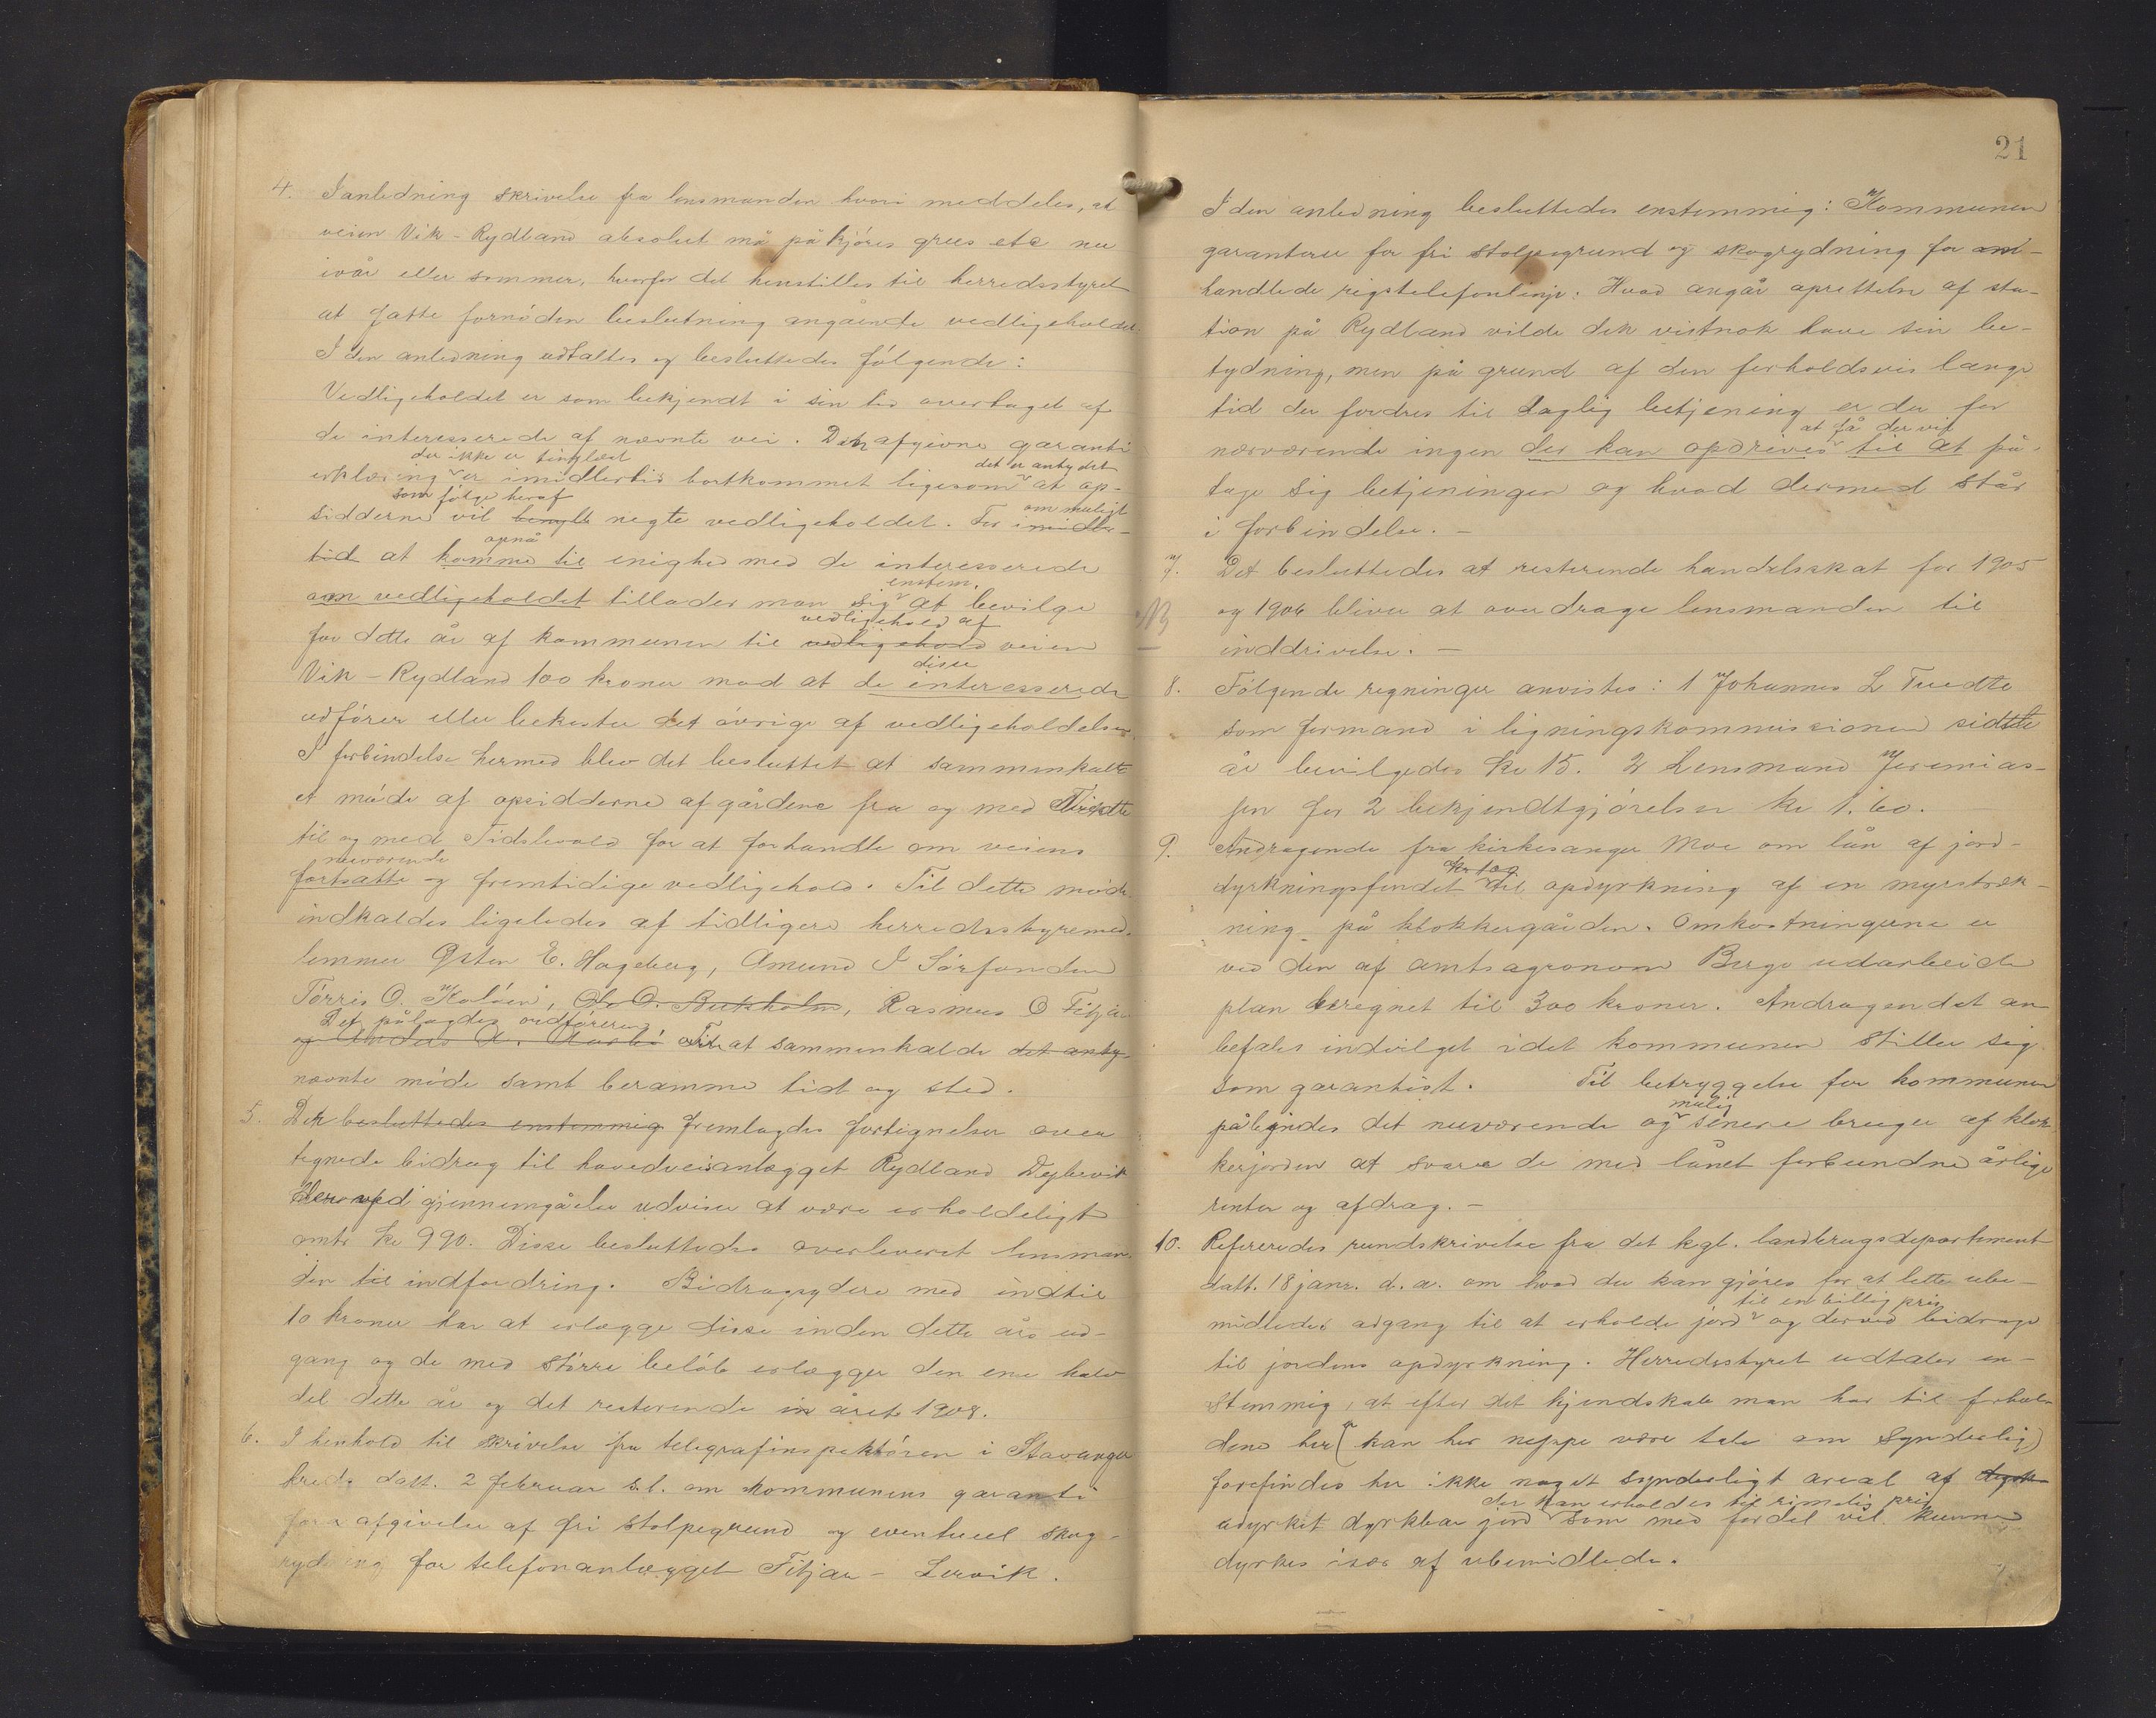 4. I anledning skrivelse fra lensmanden hvori meddeles, at
veien Vik-Rydland absolut må påkjöres grus etc nu
ivår eller sommer, hvorfor det henstilles til herredsstyret
at fatte fornöden beslutning angående vedligeholdet.
I den anledning udtaltes og besluttedes fölgende:
Vedligeholdet er som bekjendt i sin tid overtaget af
de interesserede af nævnte vei. Den afgivne garanti
der ikke er tinglæst det er antydet
erklæring er imidlertid bortkommet ligesom at op-
som fölge heraf om muligt
sidderne vil negte vedligeholdet. For imidler-
opnå
tid at komme til enighed med de interesserede
enstem.
om vedligeholdet tillader man sig at bevilge
vedligehold af
for dette år af kommunen til vedligehold veien
disse
Vik-Rydland 100 kroner mod at de interesserede
udförer eller bekoster det övrige af vedligeholdelsen
I forbindelse hermed blev det besluttet at sammenkalte
et möde af opsidderne af gårdene fra og med Tvedte
til og med Tidslevold for at forhandle om veiens
nuværende
fortsatte og fremtidige vedligehold. Til dette möde
indkaldes ligeledes af tidligere herredsstyremed-
lemmer Östen E. Hageberg, Amund I Sörfonden
Törris O. Kalöen, Ole O. Bukholm, Rasmus O Fitjar
Det pålagdes ordföreren
og Anders A. at sammenkalde det anty-
nævnte möde samt beramme tid og sted.
5. Det besluttedes enstemmig fremlagdes fortegnelse over
tegnede bidrag til hovedveisanlægget Rydland Dybevik
Der ved gjennemgåelse udviser at være erholdeligt
omtr kr 990. Disse besluttedes overleveret lensman-
den til indfordring. Bidragsydere med indtil
10 kroner har at erlægge disse inden dette års ud-
gang og de med större belöb erlægger den ene halv
del dette år og det resterende in året 1908.
6. I henhold til skrivelse fra telegrafinspektören i Stavanger
kreds datt. 2 februar s.l. om kommunens garanti
for afgivelse af fri stolpegrund og eventuel skog-
rydning for telefonanlægget Fitjar-Lervik.
21
I den anledning besluttedes enstemmig: Kommunen
garanterer for fri stolpegrund og skogrydning for om-
handlede rigstelefonlinje. Hvad angår oprettelse af sta-
tion på Rydland vilde den vistnok have sin be-
tydning, men på grund af den forholdsvis lange
tid der fordres til daglig betjening er der for
at få der vil
nærværende ingen der kan opdrives til at på-
tage sig betjeningen og hvad dermed står
i forbindelse.-
7. Det besluttedes at resterende handelsskat for 1905
og 1906 bliver at overdrage lensmanden til
inddrivelse.-
8. Fölgende regninger anvistes: 1 Johannes L Tvedte
som formand i ligningskommissionen sidste
år bevilgedes kr 15. 2 Lensmand Jeremias-
sen for 2 bekjendtgjörelser kr 1.60.
9. Andragende fra kirkesanger Moe om lån af jord-
kr 100
dyrkningsfondet til opdyrkning af en myrstræk-
ning på klokkergården. Omkostningerne er
ved den af amtsagronom Berge udarbeide
plan beregnet til 300 kroner. Andragendet an-
befales indvilget idet kommunen stiller sig
som garantist. Til betryggelse for kommunen
mulig
pålegndes det nuværende og senere bruger af klok-
kerjorden at svare de med lånet forbundne årlige
renter og afdrag.-
10. Refereredes rundskrivelse fra det kgl. landbrugsdepartement
datt. 18 janr. d.a. om hvad der kan gjöres for at lette ube-
til en billig pris
midledes adgang til at erholde jord og derved bidrage
til jordens opdyrkning. Herredsstyret udtaler en-
stemmig, at efter det kjendskab man har til forhol-
dene her (kan her neppe være tale om synderlig)
forefindes her ikke noget synderligt areal af dyrk
der kan erholdes til rimelig pris
udyrket dyrkbar jord som med fordel vil kunne
dyrkes især af ubemidlede.